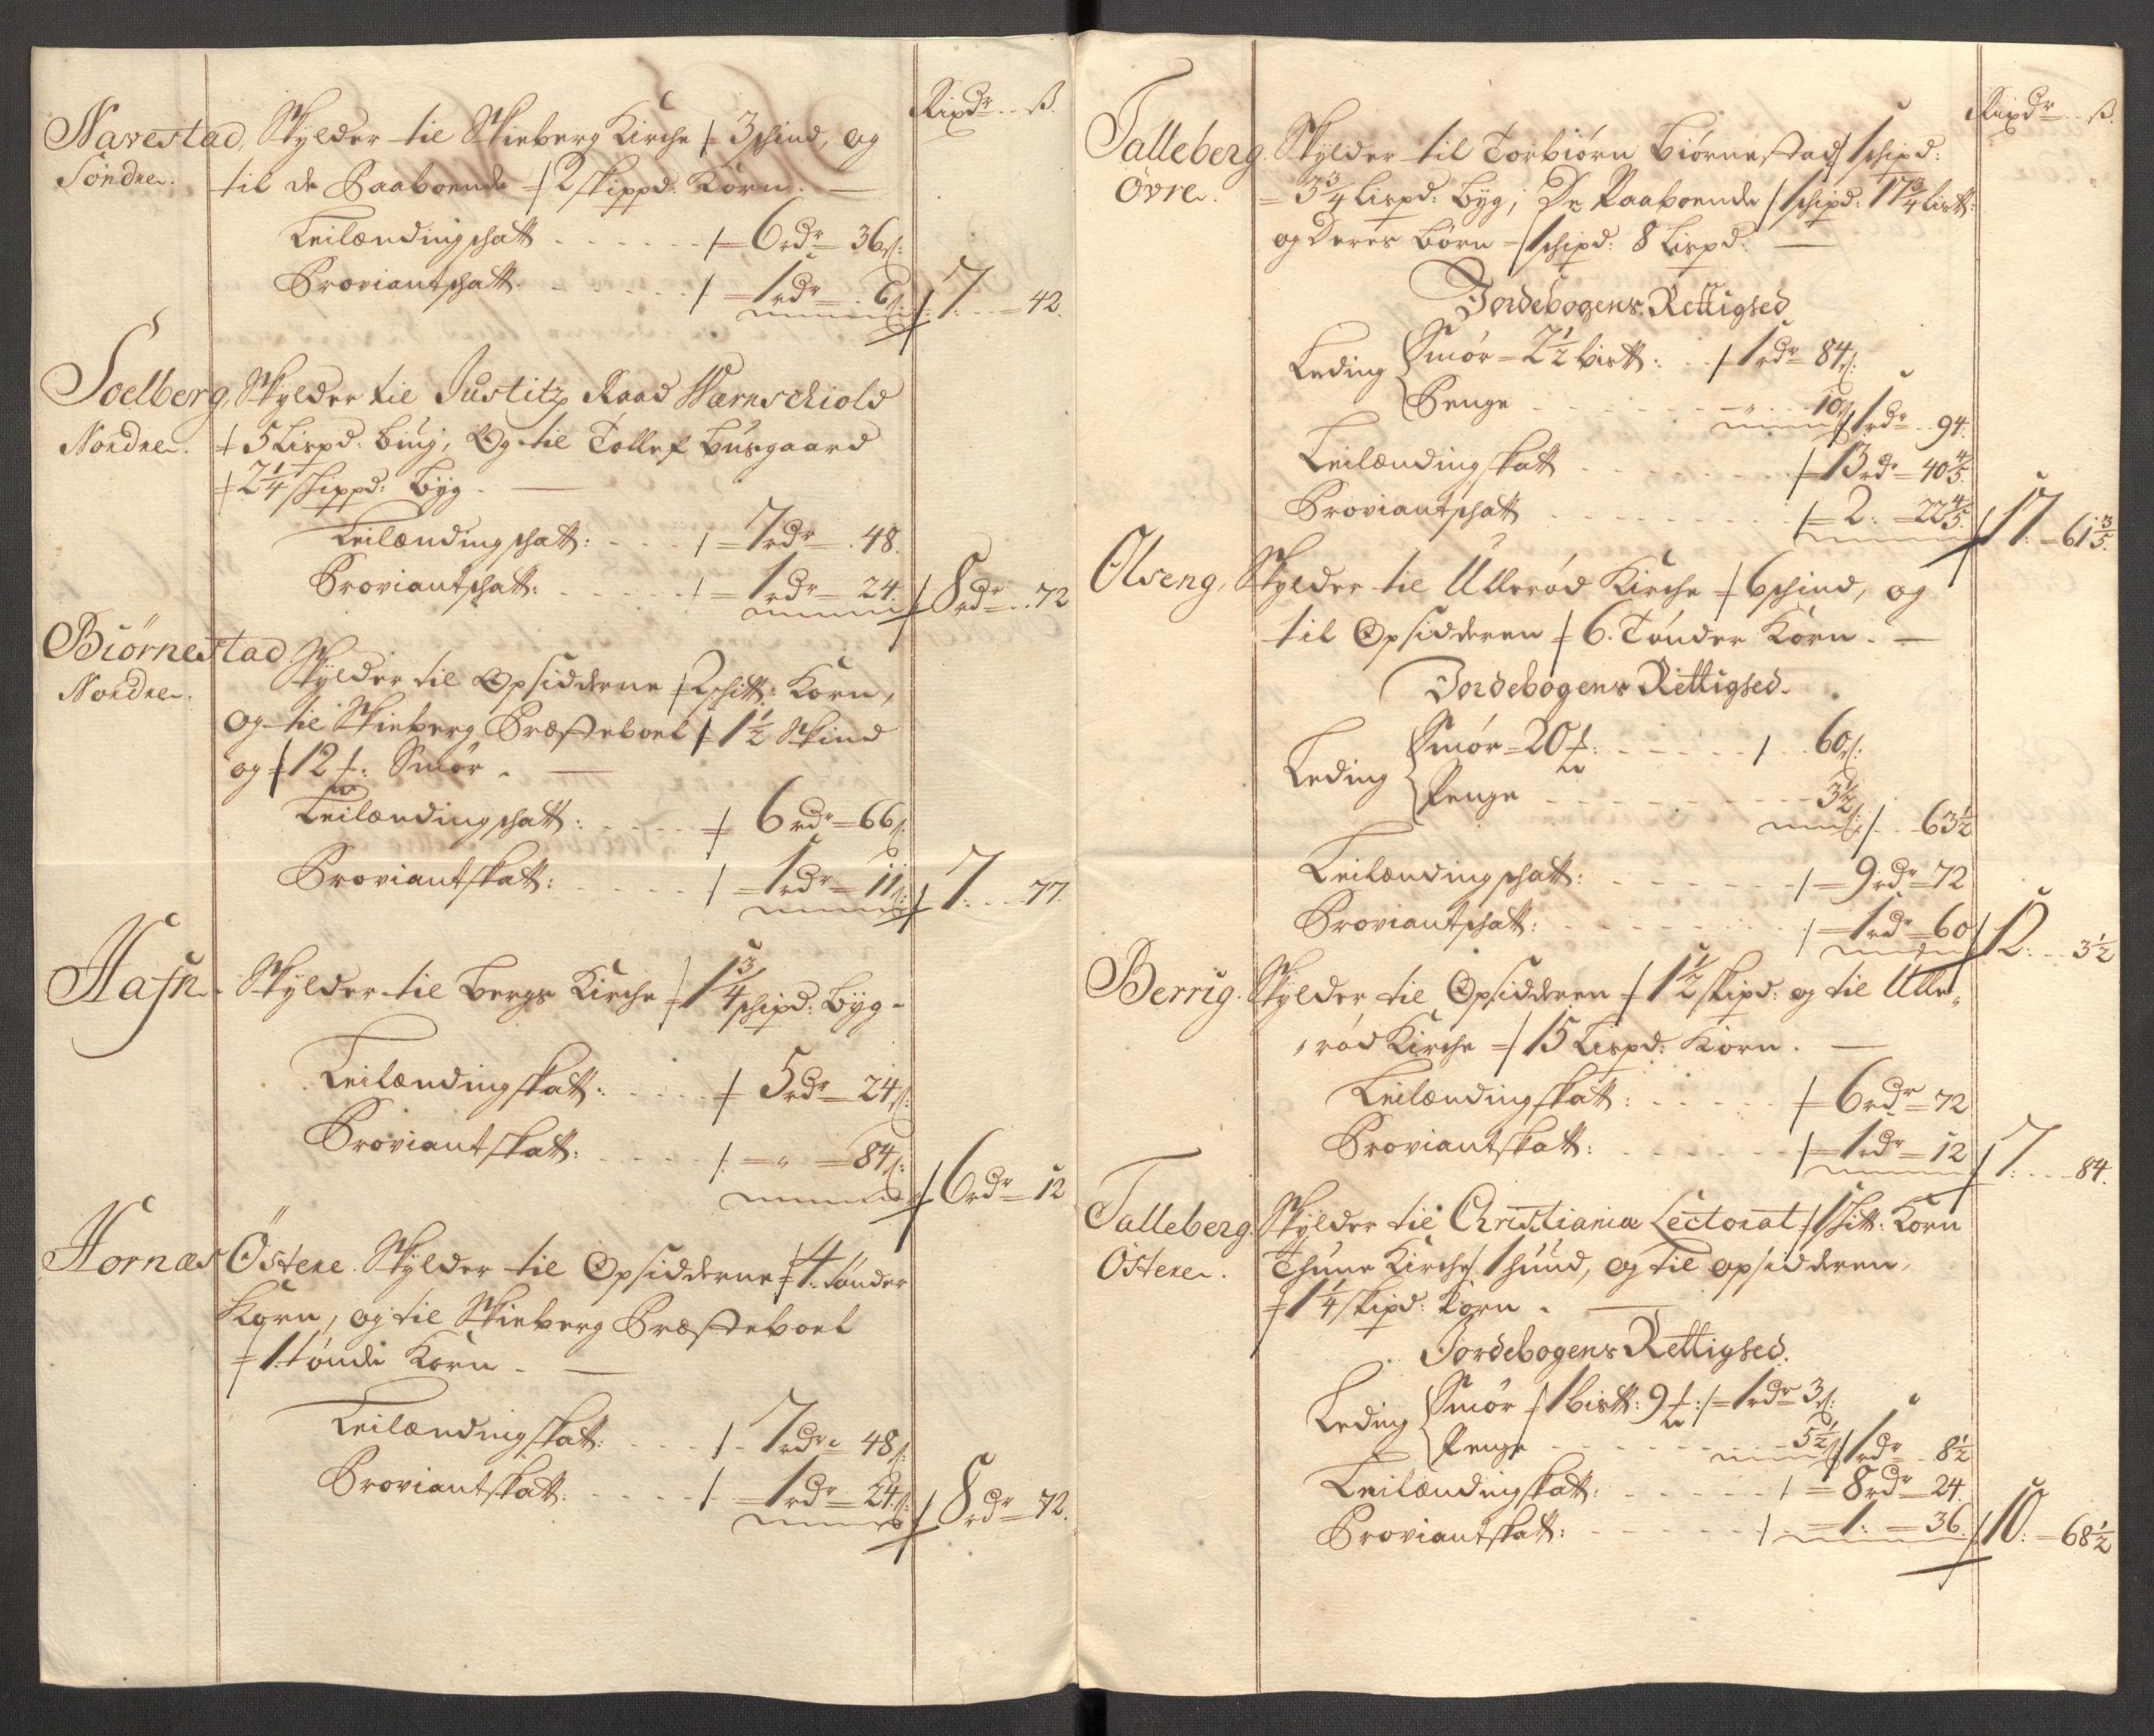 Rixdr ß.
Navestad, Skylder til Skieberg Kirche 3 skind, og
Söndre. til de Paaboende 2 skippd: Korn.
Leilændingschatt 6 rdr 36 s:
Proviantschatt 1 rdr 6 s: 7 42.
Soelberg, Skylder til Justitz Raad Warnschiold
Nordre. 5 Lispd: biug, Og til Tollef Busgaard
2 1/4 skippd: byg.
Leilændingschatt: 7 rdr 48.
Proviantschatt: 1 rdr 24. 8 rdr 72
Biörnestad
Nordre. Skylder til Opsidderne 2 schitt: Korn,
og til Skieberg Præsteboel 1 1/2 Skind
og 12 ℔: Smör.
Leilændingschatt: 6 rdr 66 s:
Proviantskatt: 1 rdr 11 s: 7 77.
Hafn. Skylder til Bergs Kirche 1 3/4 schipd: byg.
Leilændingskatt: 5 rdr 24 s:
Proviantskatt: " 84 s: 6 rdr 12
Hornæs Östere. Skylder til Opsidderne 4 tönder
Korn, og til Skieberg Præsteboel
1 tönde Korn.
Leilændingskatt: 7 rdr 48 s:
Proviantskatt: 1 rdr 24 s: 8 rdr 72.
Rixdr ß.
Talleberg. Skylder til Torbiörn Biörnestad 1 schipd:
Övre. 3 3/4 Lispd: byg; De Paaboende 1 schipd: 17 3/4 List:
og Deres Börn 1 schipd: 8 Lispd:
Jordebogens Rettighed
Leding Smör 2 1/2 bistt: 1 rdr 84 s:
Penge " 10 s 1 rdr 94.
Leilændingskatt 13 rdr 40 4/5.
Proviantschatt 2: 22 4/5. 17: 61 3/5.
Olseng, Skylder til Ullerød Kirche 6 schind, og
til Opsidderen 6. Tönder Korn.
Jordebogens Rettighed.
Leding Smör 20 ℔: 60 s:
Penge 3 1/2 s: 63 1/2
Leilændingschatt: 9 rdr 72
Proviantschatt: 1 rdr 60 12: 3 1/2
Berrig. Skylder til Opsidderen 1 1/2 skipd: og til Ulle,
,röd Kirche 15 Lispd: Korn.
Leilændingskatt: 6 rdr 72
Proviantskatt: 1 rdr 12 7: 84.
Talleberg. Skylder til Christianiæ Lectorat 1 skitt: Korn
Östere. Thune Kirche 1 huud, og til opsidderen,
1 1/4 skipd: Korn.
Jordebogens Rettighed.
Leding Smör 1 bistt: 9 ℔: 1 rdr 3 s:
Penge 5 1/2 s: 1 rdr 8 1/2
Leilændingskatt: 8 rdr 24.
Proviantskatt: 1: 36. 10: 68 1/2